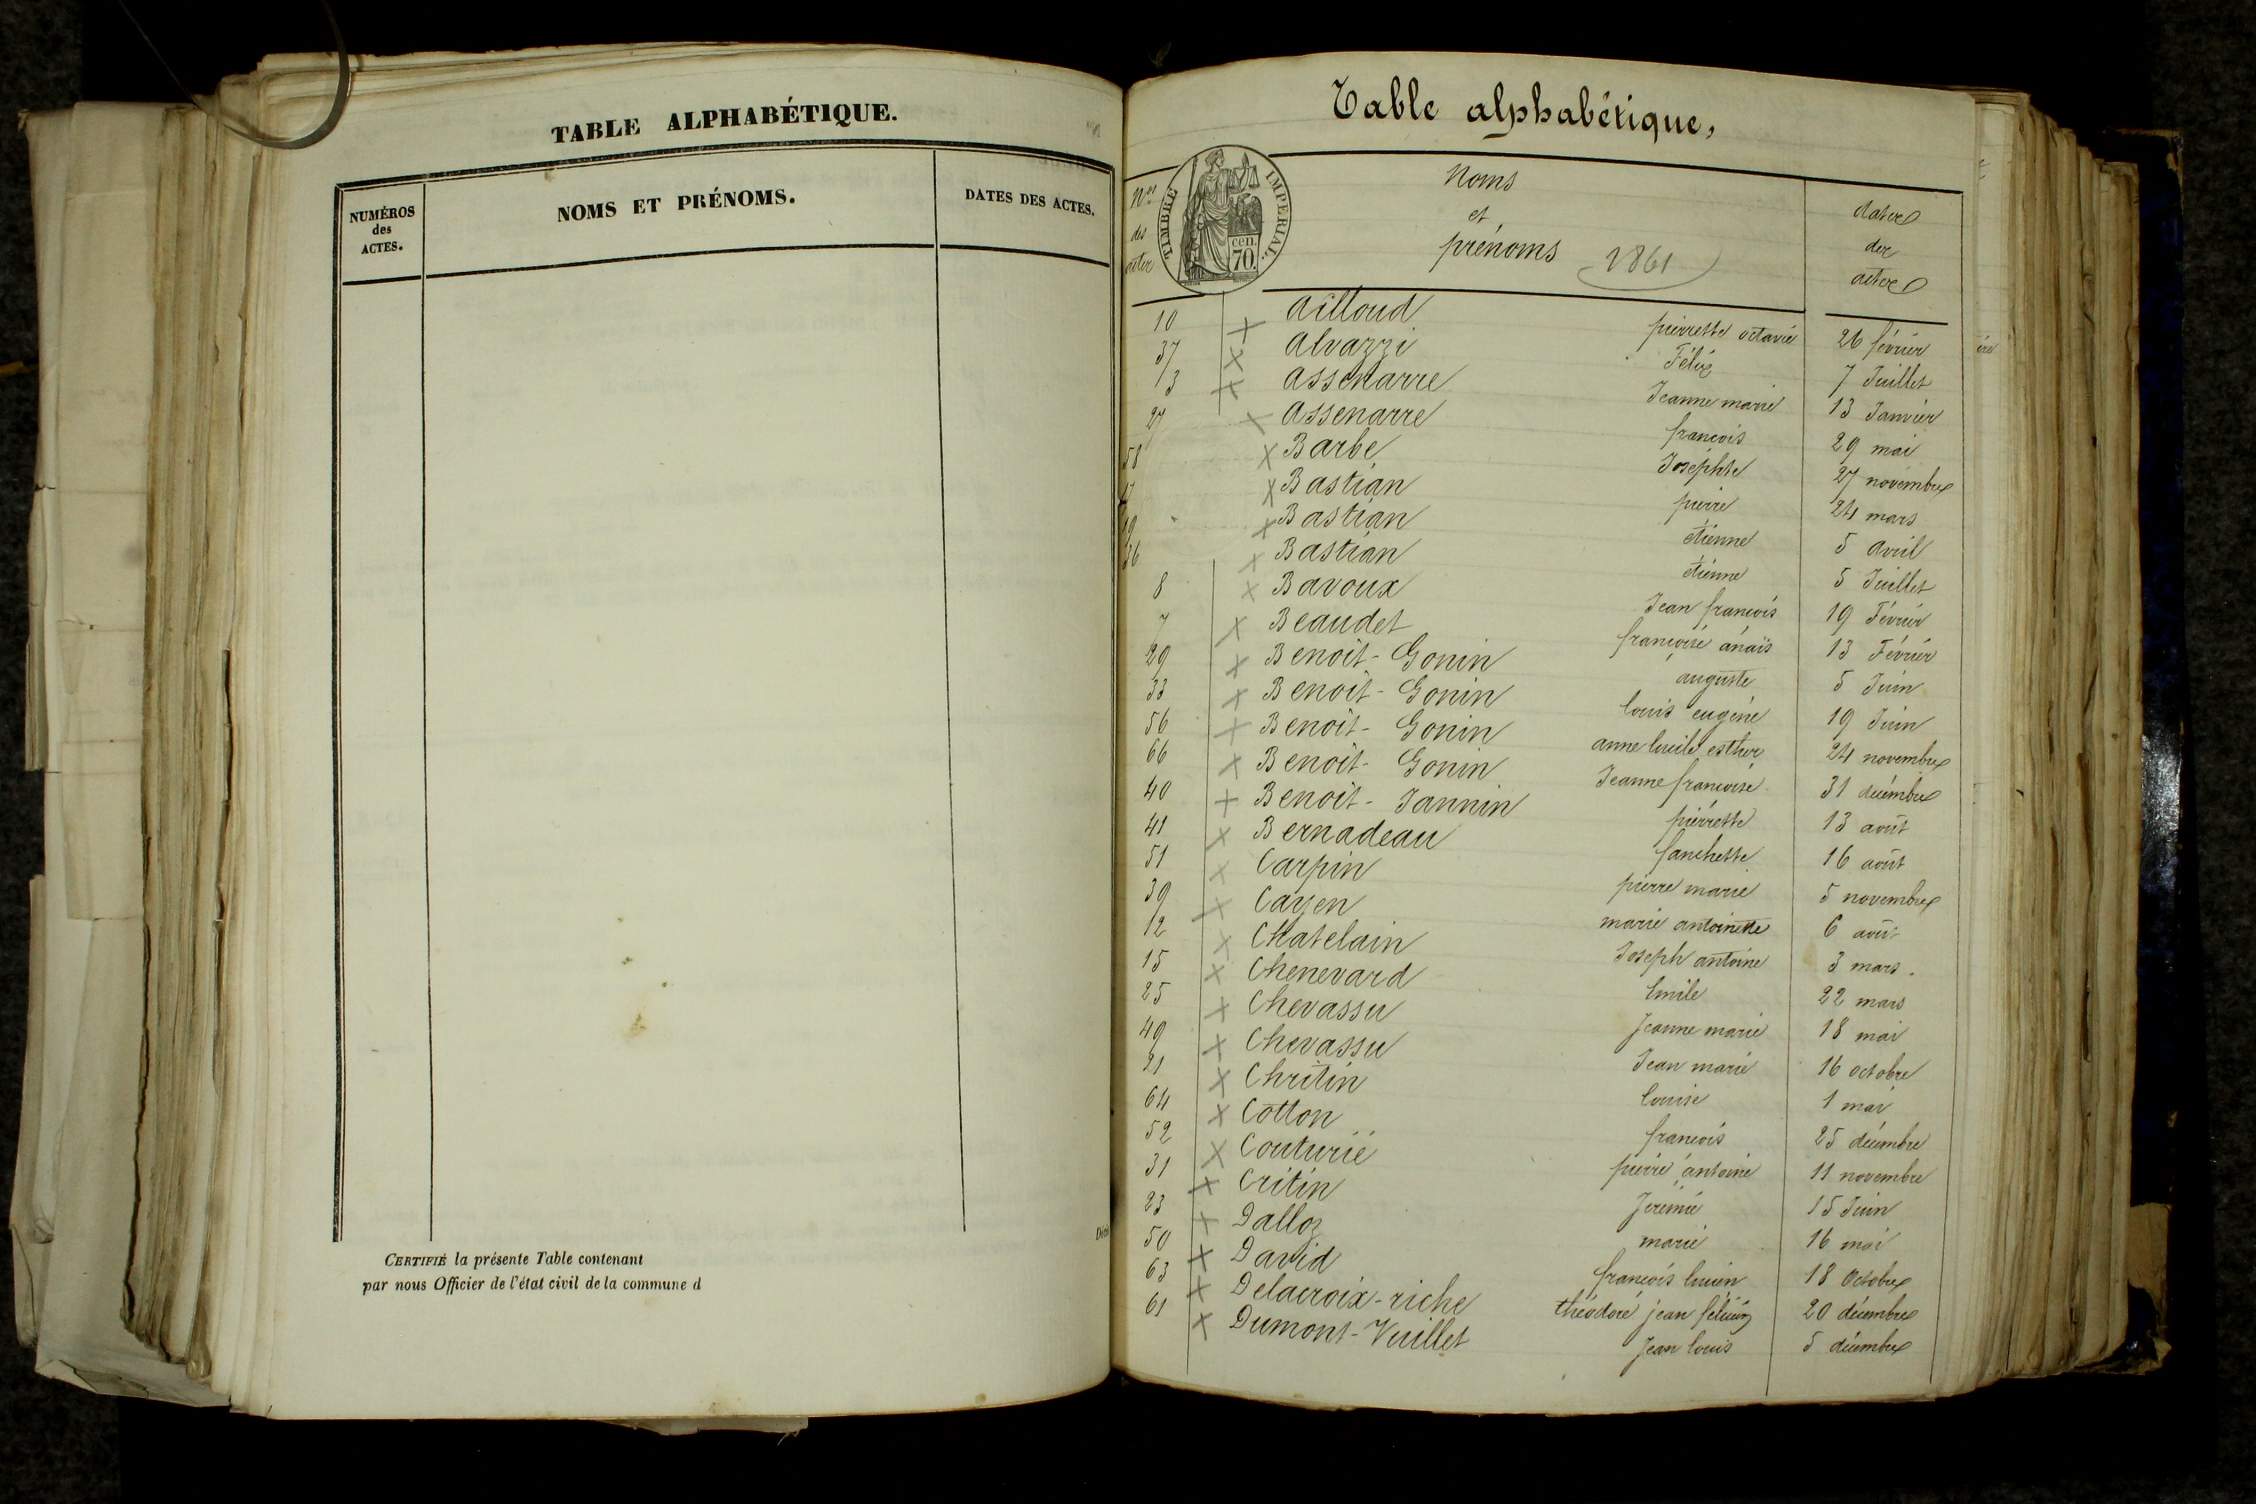 TABLE ALPHABÉTIQUE.
NUMÉROS des ACTES.
NOMS ET PRÉNOMS.
DATES DES ACTES.
CERTIFIÉ la présente Table contenant
par nous Officier de l'état civil de la commune d
Table alphabétique,
Nos des actes
TIMBRE IMPÉRIAL.
cen. 70.
Noms et prénoms 1861
dates des actes
10 Ailloud pierrette octavie 26 février
37 Alvazzi Félix 7 Juillet
3 Assenarre Jeanne marie 13 Janvier
27 Assenarre françois 29 mai
58 Barbe Josephte 27 novembre
17 Bastian pierre 24 mars
19 Bastian étienne 5 avril
36 Bastian étienne 5 Juillet
8 Bavoux Jean françois 19 Février
7 Beaudet françoise anaïs 13 Février
29 Benoit-Gonin auguste 5 Juin
33 Benoit-Gonin louis eugène 19 Juin
56 Benoit-Gonin anne lucile esther 24 novembre
66 Benoit-Gonin Jeanne françoise 31 décembre
40 Benoit-Jannin pierrette 13 août
41 Bernadeau fanchette 16 août
51 Carpin pierre marie 5 novembre
39 Cayen marie antoinette 6 août
12 Chatelain Joseph antoine 3 mars.
15 Chenevard Emile 22 mars
25 Chevassu Jeanne marie 18 mai
49 Chevassu Jean marie 16 octobre
21 Chritin louise 1 mai
64 Cotton françois 25 décembre
52 Couturié pierre antoine 11 novembre
31 Critin Jérémie 15 Juin
23 Dalloz marie 16 mai
50 David françois lucien 18 Octobre
63 Delacroix-riche théodore jean félicien 20 décembre
61 Dumont-Vuillet Jean louis 5 décembre